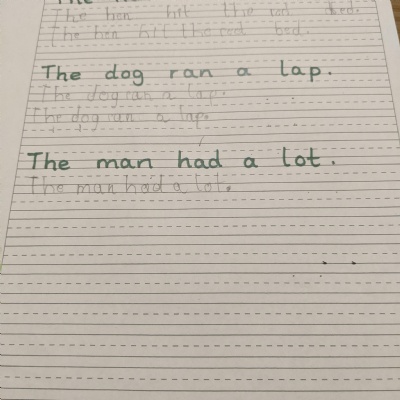 The
The hen hit the red bed.
The hen hit the red bed.
The dog ran a lap.
The dog ran a lap.
The dog ran a lap.
The man had a lot.
The man had a lot.